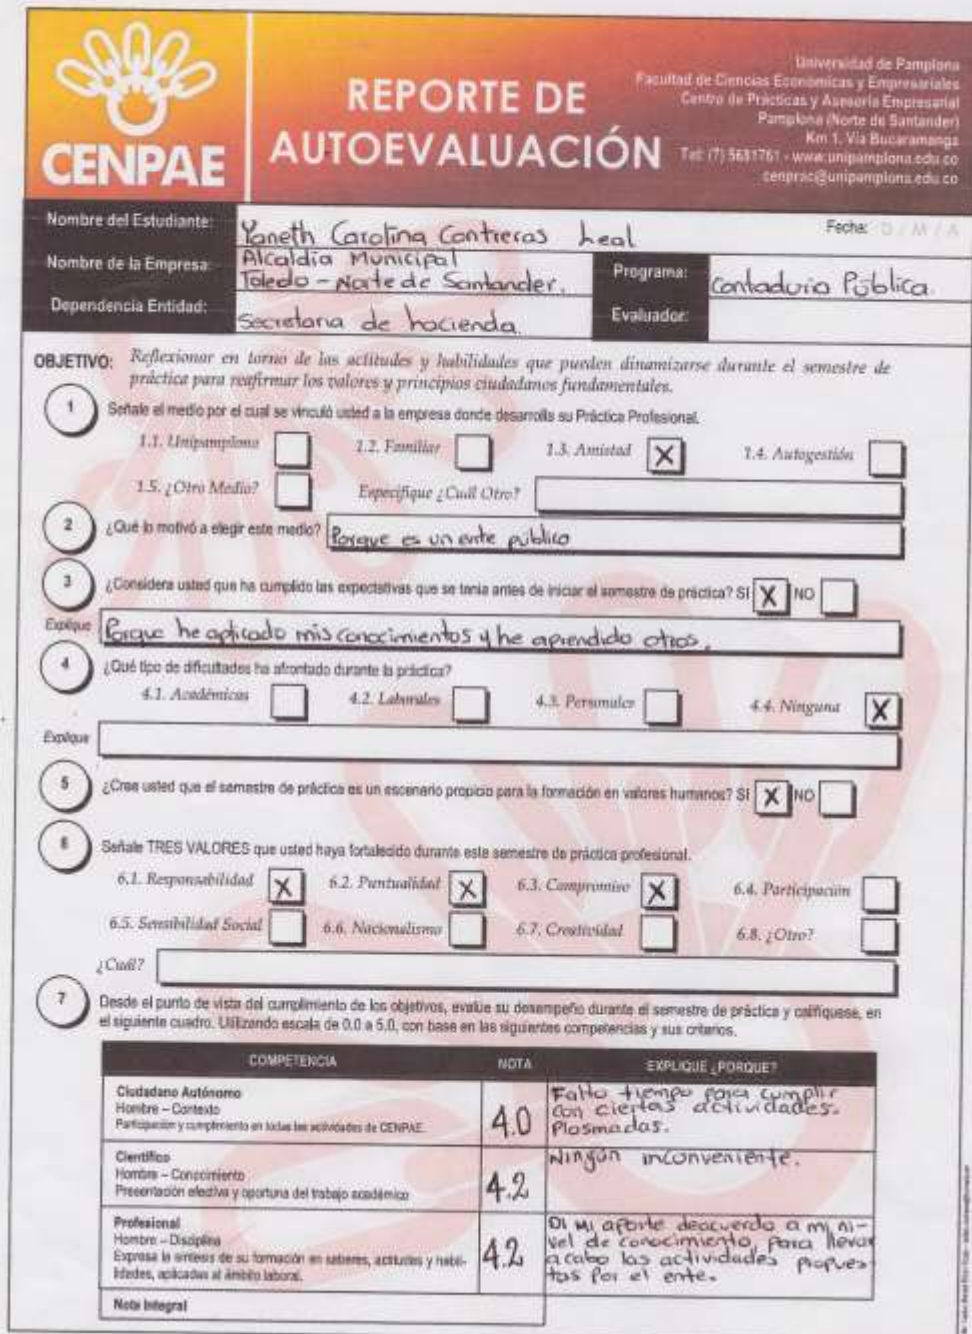 CENPAE
REPORTE DE
AUTOEVALUACIÓN
Universidad de Pamplona
Facultad de Ciencias Económicas y Empresariales
Centro de Prácticas y Asesoría Empresarial
Pamplona (Norte de Santander)
Km 1, Vía Bucaramanga
Tel: (7) 5681761 - www.unipamplona.edu.co
cenprac@unipamplona.edu.co
Nombre del Estudiante: Yaneth Carolina Contreras Leal
Fecha: D / M / A
Nombre de la Empresa: Alcaldía Municipal
Toledo - Norte de Santander.
Programa: Contaduria Pública.
Dependencia Entidad: Secretaria de hacienda.
Evaluador:
OBJETIVO: Reflexionar en torno de las actitudes y habilidades que pueden dinamizarse durante el semestre de
práctica para reafirmar los valores y principios ciudadanos fundamentales.
1 Señale el medio por el cual se vinculó usted a la empresa donde desarrolla su Práctica Profesional.
1.1. Unipamplona 1.2. Familiar 1.3. Amistad X 1.4. Autogestión
1.5. ¿Otro Medio? Especifique ¿Cuál Otro?
2 ¿Qué lo motivó a elegir este medio? Porque es un ente público
3 ¿Considera usted que ha cumplido las expectativas que se tenia antes de iniciar el semestre de práctica? SI X NO
Explique Porque he aplicado mis conocimientos y he aprendido otros.
4 ¿Qué tipo de dificultades ha afrontado durante la práctica?
4.1. Académicas 4.2. Laborales 4.3. Personales 4.4. Ninguna X
Explique
5 ¿Cree usted que el semestre de práctica es un escenario propicio para la formación en valores humanos? SI X NO
6 Señale TRES VALORES que usted haya fortalecido durante este semestre de práctica profesional.
6.1. Responsabilidad X 6.2. Puntualidad X 6.3. Compromiso X 6.4. Participación
6.5. Sensibilidad Social 6.6. Nacionalismo 6.7. Creatividad 6.8. ¿Otro?
¿Cuál?
7 Desde el punto de vista del cumplimiento de los objetivos, evalúe su desempeño durante el semestre de práctica y califíquese, en
el siguiente cuadro. Utilizando escala de 0.0 a 5.0, con base en las siguientes competencias y sus criterios.
COMPETENCIA NOTA EXPLIQUE ¿PORQUE?
Ciudadano Autónomo
Hombre – Contexto
Participación y cumplimiento en todas las actividades de CENPAE.
4.0
Falto tiempo para cumplir
con ciertas actividades.
Plasmadas.
Científico
Hombre – Conocimiento
Presentación efectiva y oportuna del trabajo académico
4.2
Ningún inconveniente.
Profesional
Hombre – Disciplina
Expresa la síntesis de su formación en saberes, actitudes y habi-
lidades, aplicadas al ámbito laboral.
4.2
Di mi aporte deacuerdo a mi ni-
vel de conocimiento, para llevar
acabo las actividades propues
tas por el ente.
Nota Integral